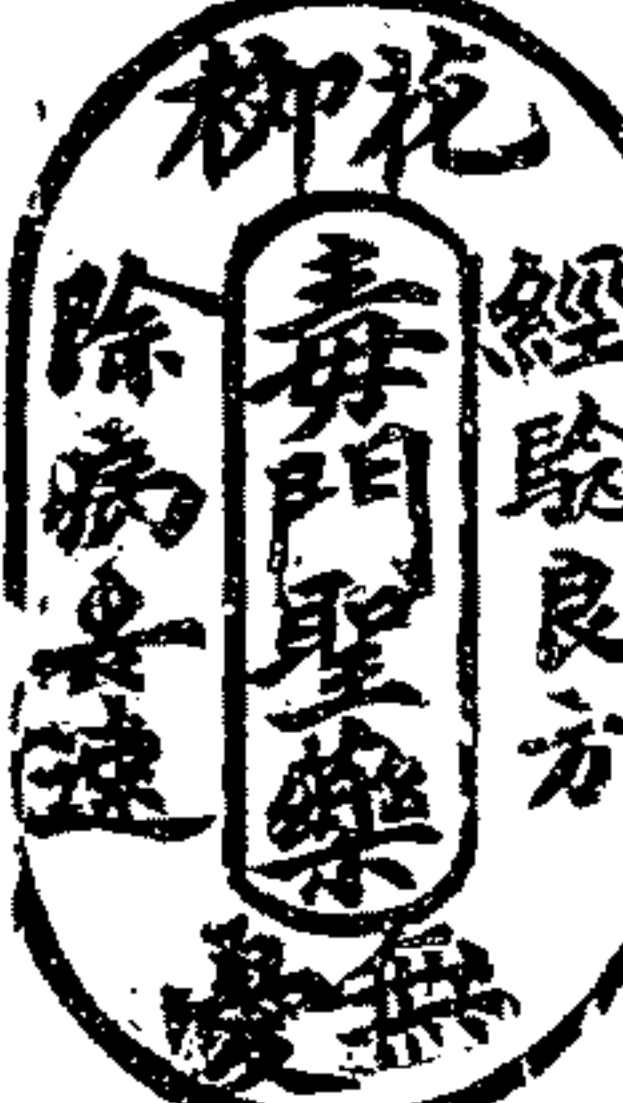 花柳
經騐良方
毒門聖藥
除病速
無憂